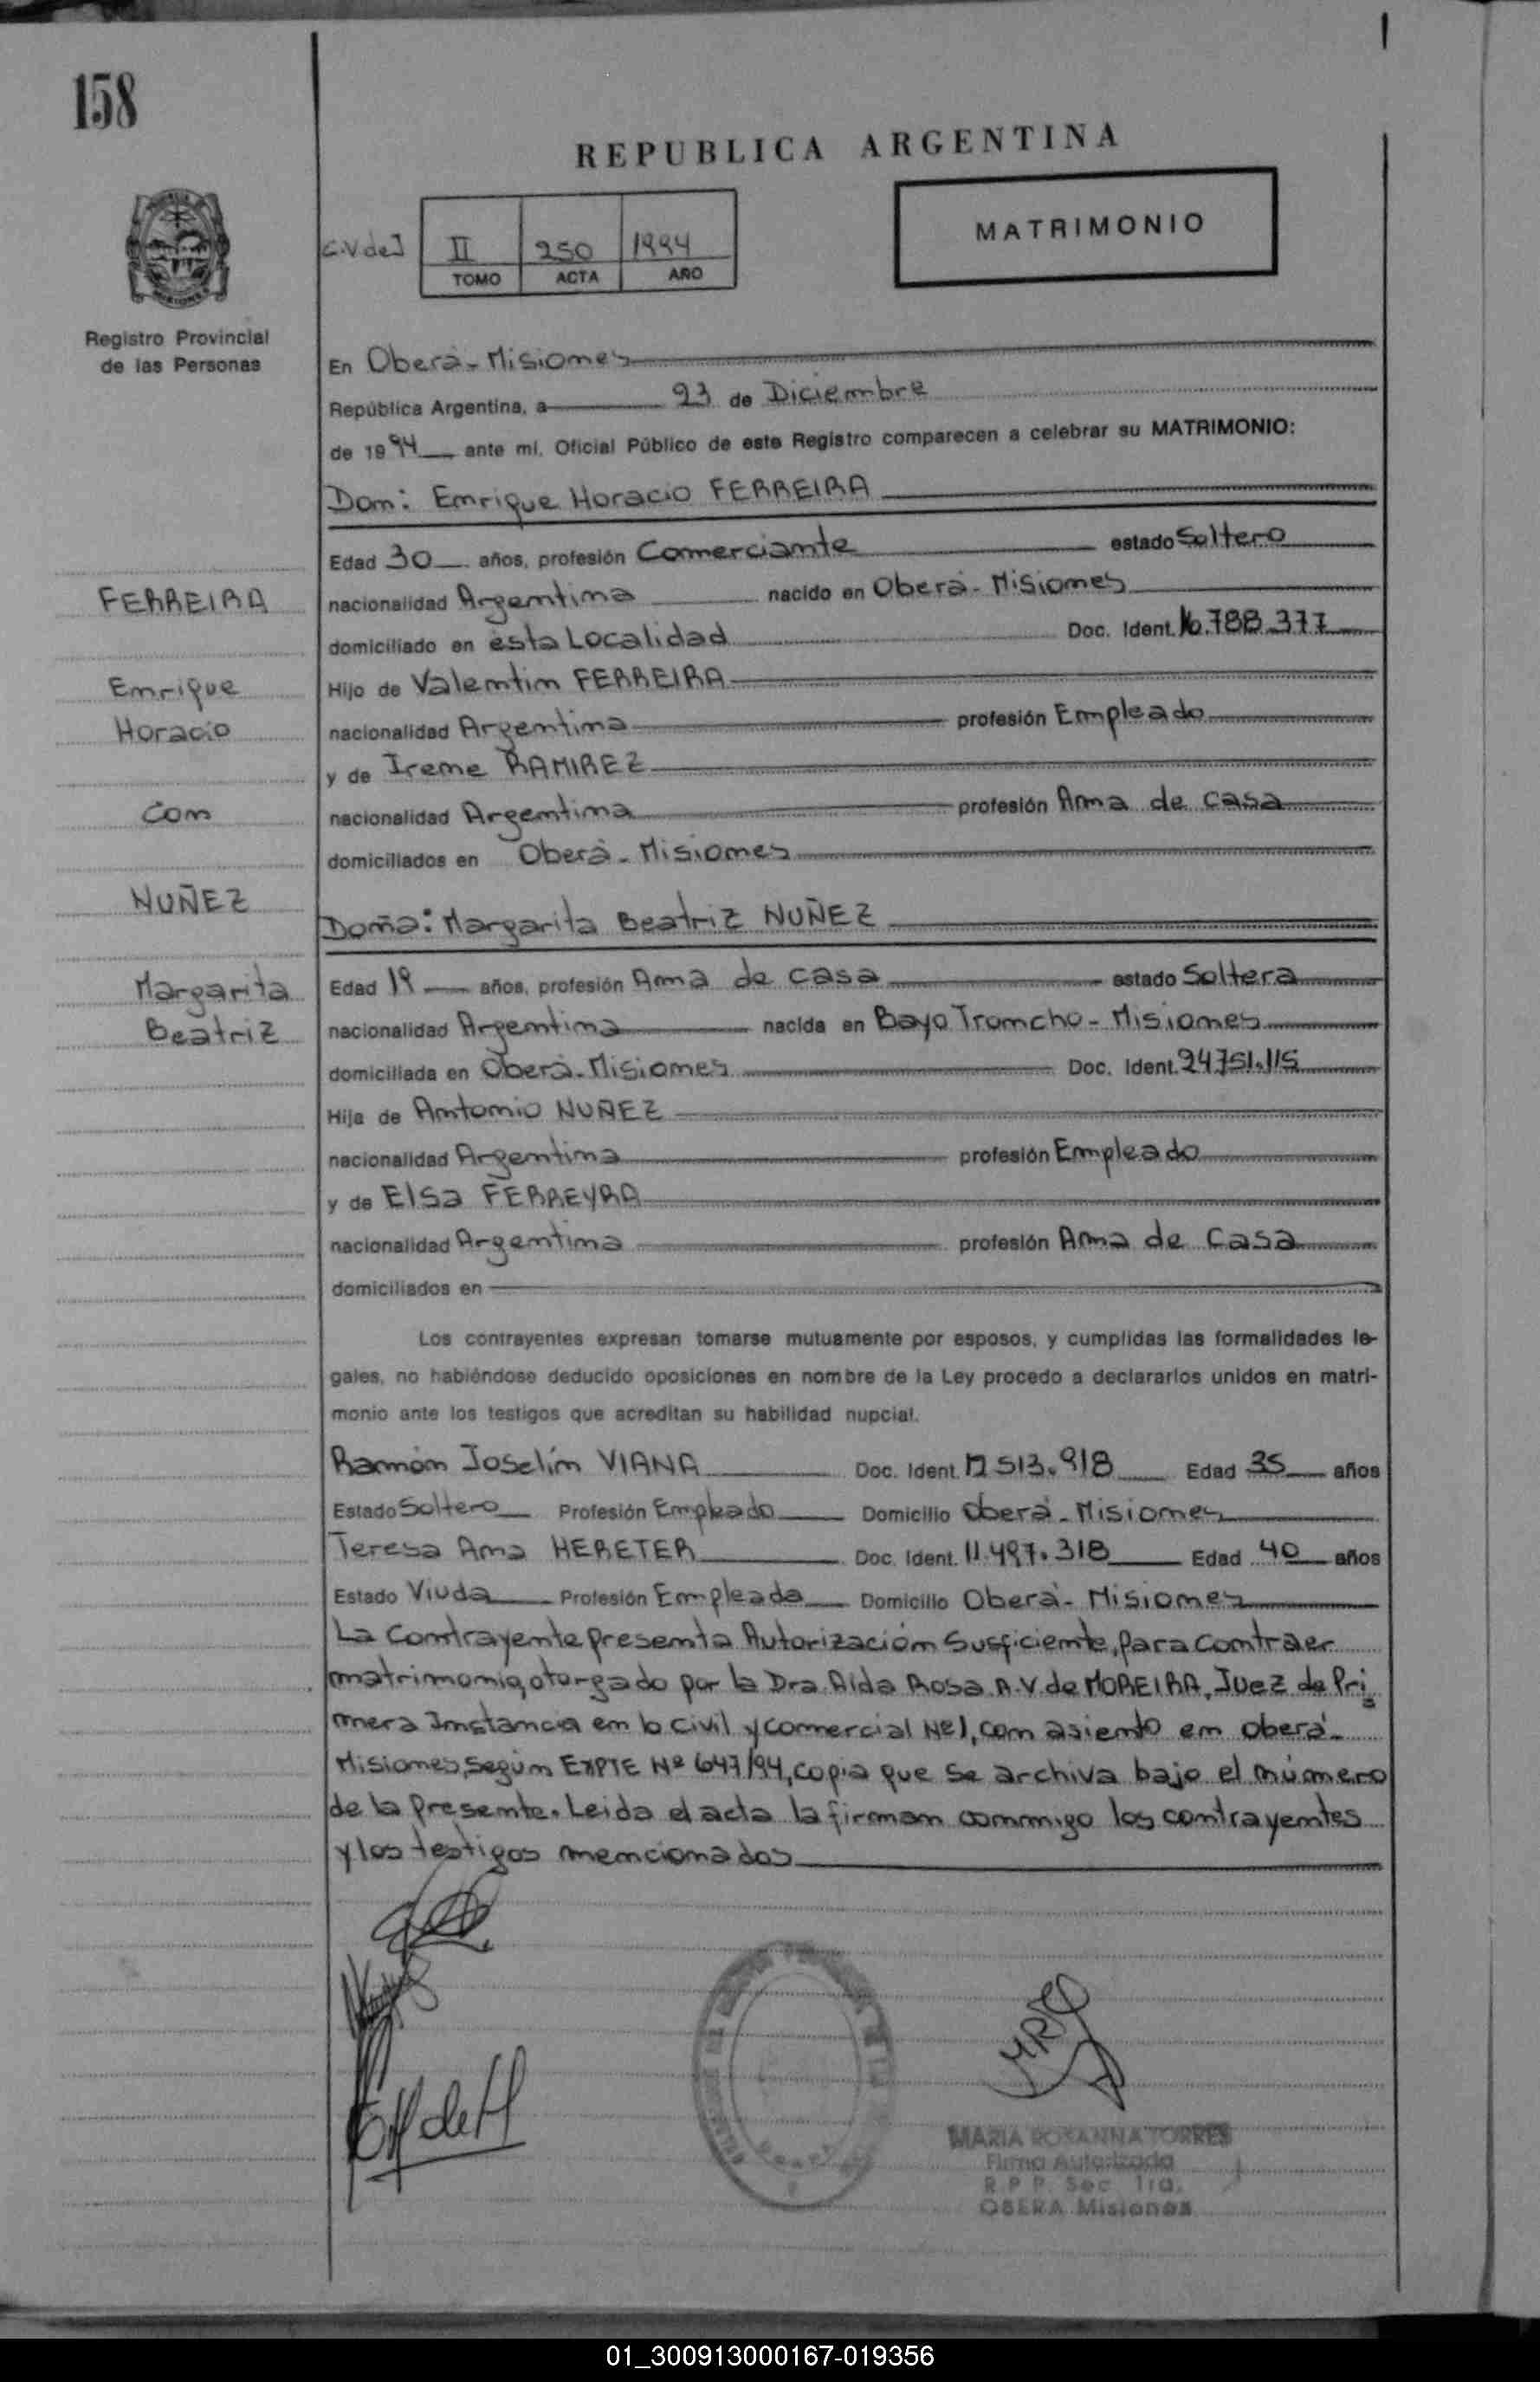 158
REPUBLICA ARGENTINA
MATRIMONIO
C.V de J
II 250 1994
TOMO ACTA AÑO
Registro Provincial
de las Personas
En Oberá - Misiones
República Argentina, a 23 de Diciembre
de 1994 ante mi, Oficial Público de este Registro comparecen a celebrar su MATRIMONIO:
Don: Enrique Horacio FERREIRA
Edad 30 años, profesión Comerciante estado Soltero
FERREIRA
nacionalidad Argentina nacido en Oberá - Misiones
domiciliado en ésta Localidad Doc. Ident. 16.788.377
Enrique
Hijo de Valentin FERREIRA
Horacio
nacionalidad Argentina profesión Empleado
y de Irene RAMIREZ
Con
nacionalidad Argentina profesión Ama de casa
domiciliados en Oberá - Misiones
NUÑEZ
Doña: Margarita Beatriz NUÑEZ
Margarita
Edad 19 años, profesión Ama de casa estado Soltera
Beatriz
nacionalidad Argentina nacida en Bayo Troncho - Misiones
domiciliada en Oberá - Misiones Doc. Ident. 24.751.115
Hija de Antonio NUÑEZ
nacionalidad Argentina profesión Empleado
y de Elsa FERREYRA
nacionalidad Argentina profesión Ama de Casa
domiciliados en
Los contrayentes expresan tomarse mutuamente por esposos, y cumplidas las formalidades le-
gales, no habiéndose deducido oposiciones en nombre de la Ley procedo a declararlos unidos en matri-
monio ante los testigos que acreditan su habilidad nupcial.
Ramón Joselín VIANA Doc. Ident. 12.513.918 Edad 35 años
Estado Soltero Profesión Empleado Domicilio Oberá - Misiones
Teresa Ana HERETER Doc. Ident. 11.497.318 Edad 40 años
Estado Viuda Profesión Empleada Domicilio Oberá - Misiones
La Contrayente presenta Autorización Susficiente, para contraer
matrimonio, otorgado por la Dra. Alda Rosa A. V. de MOREIRA, Juez de Pri
mera Instancia en lo Civil y comercial Nº1, con asiento en Oberá -
Misiones, según EXPTE Nº 647/94, copia que se archiva bajo el número
de la presente. Leida el acta la firman conmigo los contrayentes
y los testigos mencionados
MARIA ROSANNA TORRES
Firma Autorizada
R.P.P. Sec 1ra.
OBERA Misiones
01_300913000167-019356